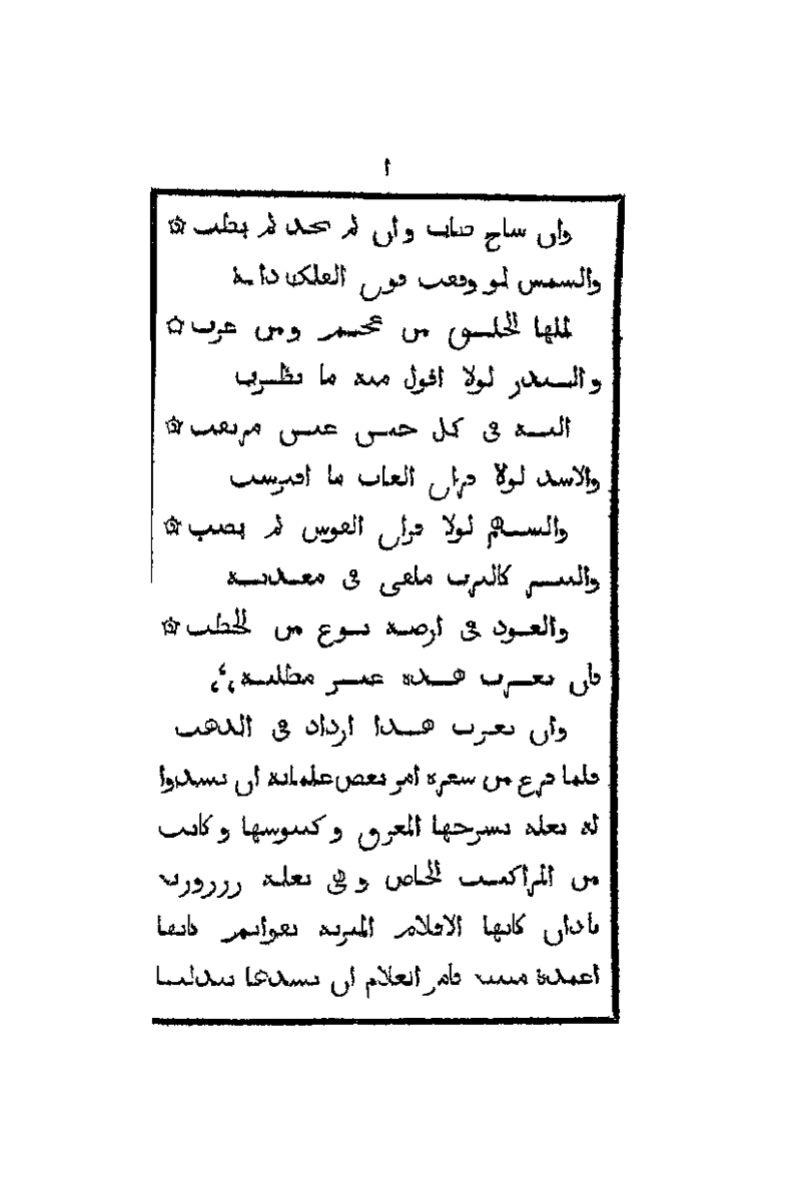 ١
وان ساح طاب وان لم يجد لم يطب
والشمس لو وقفت فوق الفلك دائمة
لملها الخلق من عجم ومن عرب
والبدر لولا افول منه ما نظرت
اليه في كل حين عين مرتقب
والاسد لولا فراق الغاب ما افترست
والسهم لولا فراق القوس لم يصب
والتبر كالترب ملقى في معدنه
والعود في ارضه نوع من الحطب
فان تغرب هذا عز مطلبه
وان تغرب هذا ازداد في الذهب
فلما فرغ من شعره امر بعض غلمانه ان يشدوا
له بغلة بسرجها المغرق وكنبوسها وكانت
من المراكيب الخاص وهي بغلة زرزورية
باذان كانها الاقلام المبرية بقوائم كانها
اعمدة مبنية فامر الغلام ان يشدها